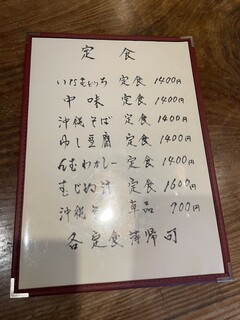 定食
定食 1400円
中味 定食 1400円
沖縄そば 定食 1400円
ゆし豆腐 定食 1400円
カレー 定食 1400円
むじぬ汁 定食 1600円
沖縄そば 単品 900円
各定食 帰可